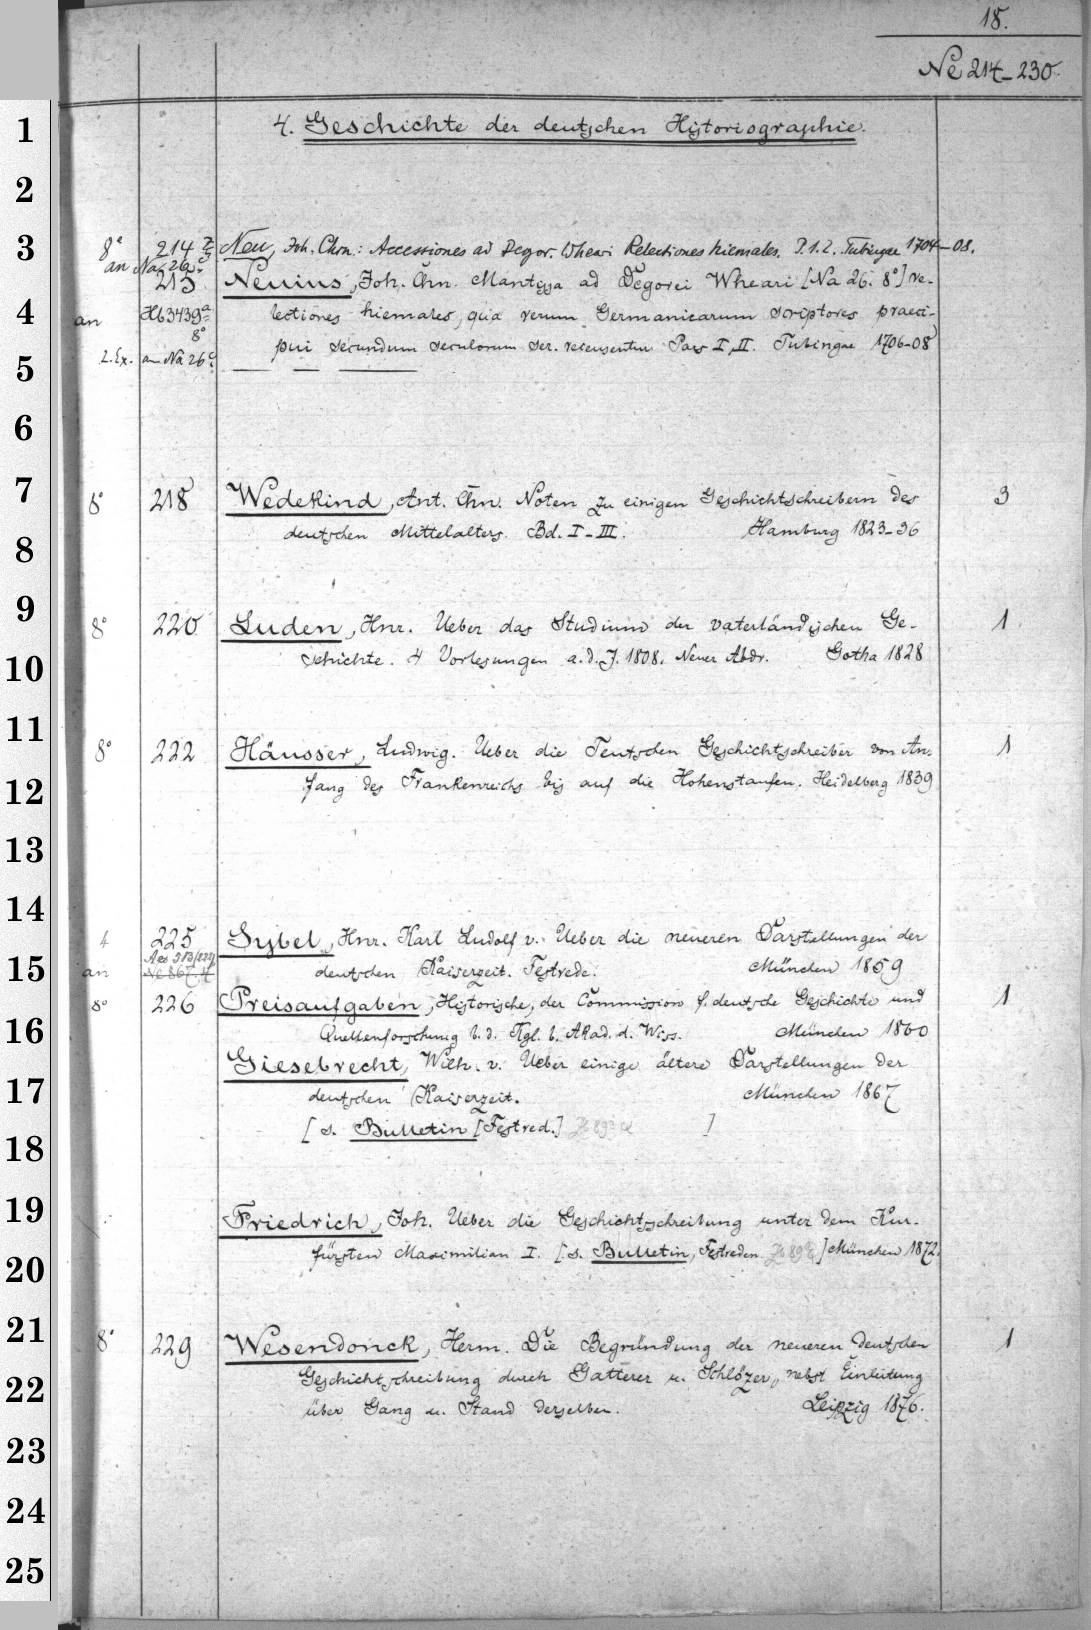 18.
Ne 214–230.
4. Geschichte der deutschen Historiographie.
8° 214 Neu, Joh. Chrn.: Accessiones ad Degor. Wheari Relectiones hiemales. P. 1. 2. Tubingae 1704–08.
an Na 26
215 Neuius, Joh. Chn. Mantissa ad Degorei Wheari [Na 26. 8°] re-
an Hb 3439a lectiones hiemales, qua rerum Germanicarum scriptores praeci-
8°
2. Ex. an Na 26c pui secundum seculorum ser. recensentur. Pars I, II. Tubingae 1706–08
8° 218 Wedekind, Ant. Chn. Noten zu einigen Geschichtschreibern des 3
deutschen Mittelalters. Bd. I–III. Hamburg 1823–36
8° 220 Luden, Hnr. Ueber das Studium der vaterländischen Ge- 1
schichte. 4 Vorlesungen a. d. J. 1808. Neuer Abdr. Gotha 1828
8° 222 Häusser, Ludwig. Ueber die Teutschen Geschichtschreiber vom An- 1
fang des Frankenreichs bis auf die Hohenstaufen. Heidelberg 1839
4 225 Sybel, Hnr. Karl Ludolf v. Ueber die neueren Darstellungen der
an deutschen Kaiserzeit. Festrede. München 1859
8° 226 Preisaufgaben, Historische, der Commission f. deutsche Geschichte und 1
Quellenforschung b. d. Kgl. b. Akad. d. Wiss. München 1860
Giesebrecht, Wilh. v. Ueber einige ältere Darstellungen der
deutschen Kaiserzeit. München 1867
[s. Bulletin [Festred.] ]
Friedrich, Joh. Ueber die Geschichtsschreibung unter dem Kur-
fürsten Maximilian I. [s. Bulletin, Festreden ] München 1872.
8° 229 Wesendonck, Herm. Die Begründung der neueren deutschen 1
Geschichtschreibung durch Gatterer u. Schlözer, nebst Einleitung
über Gang u. Stand derselben. Leipzig 1876.
1
2
3
4
5
6
7
8
9
10
11
12
13
14
15
16
17
18
19
20
21
22
23
24
25